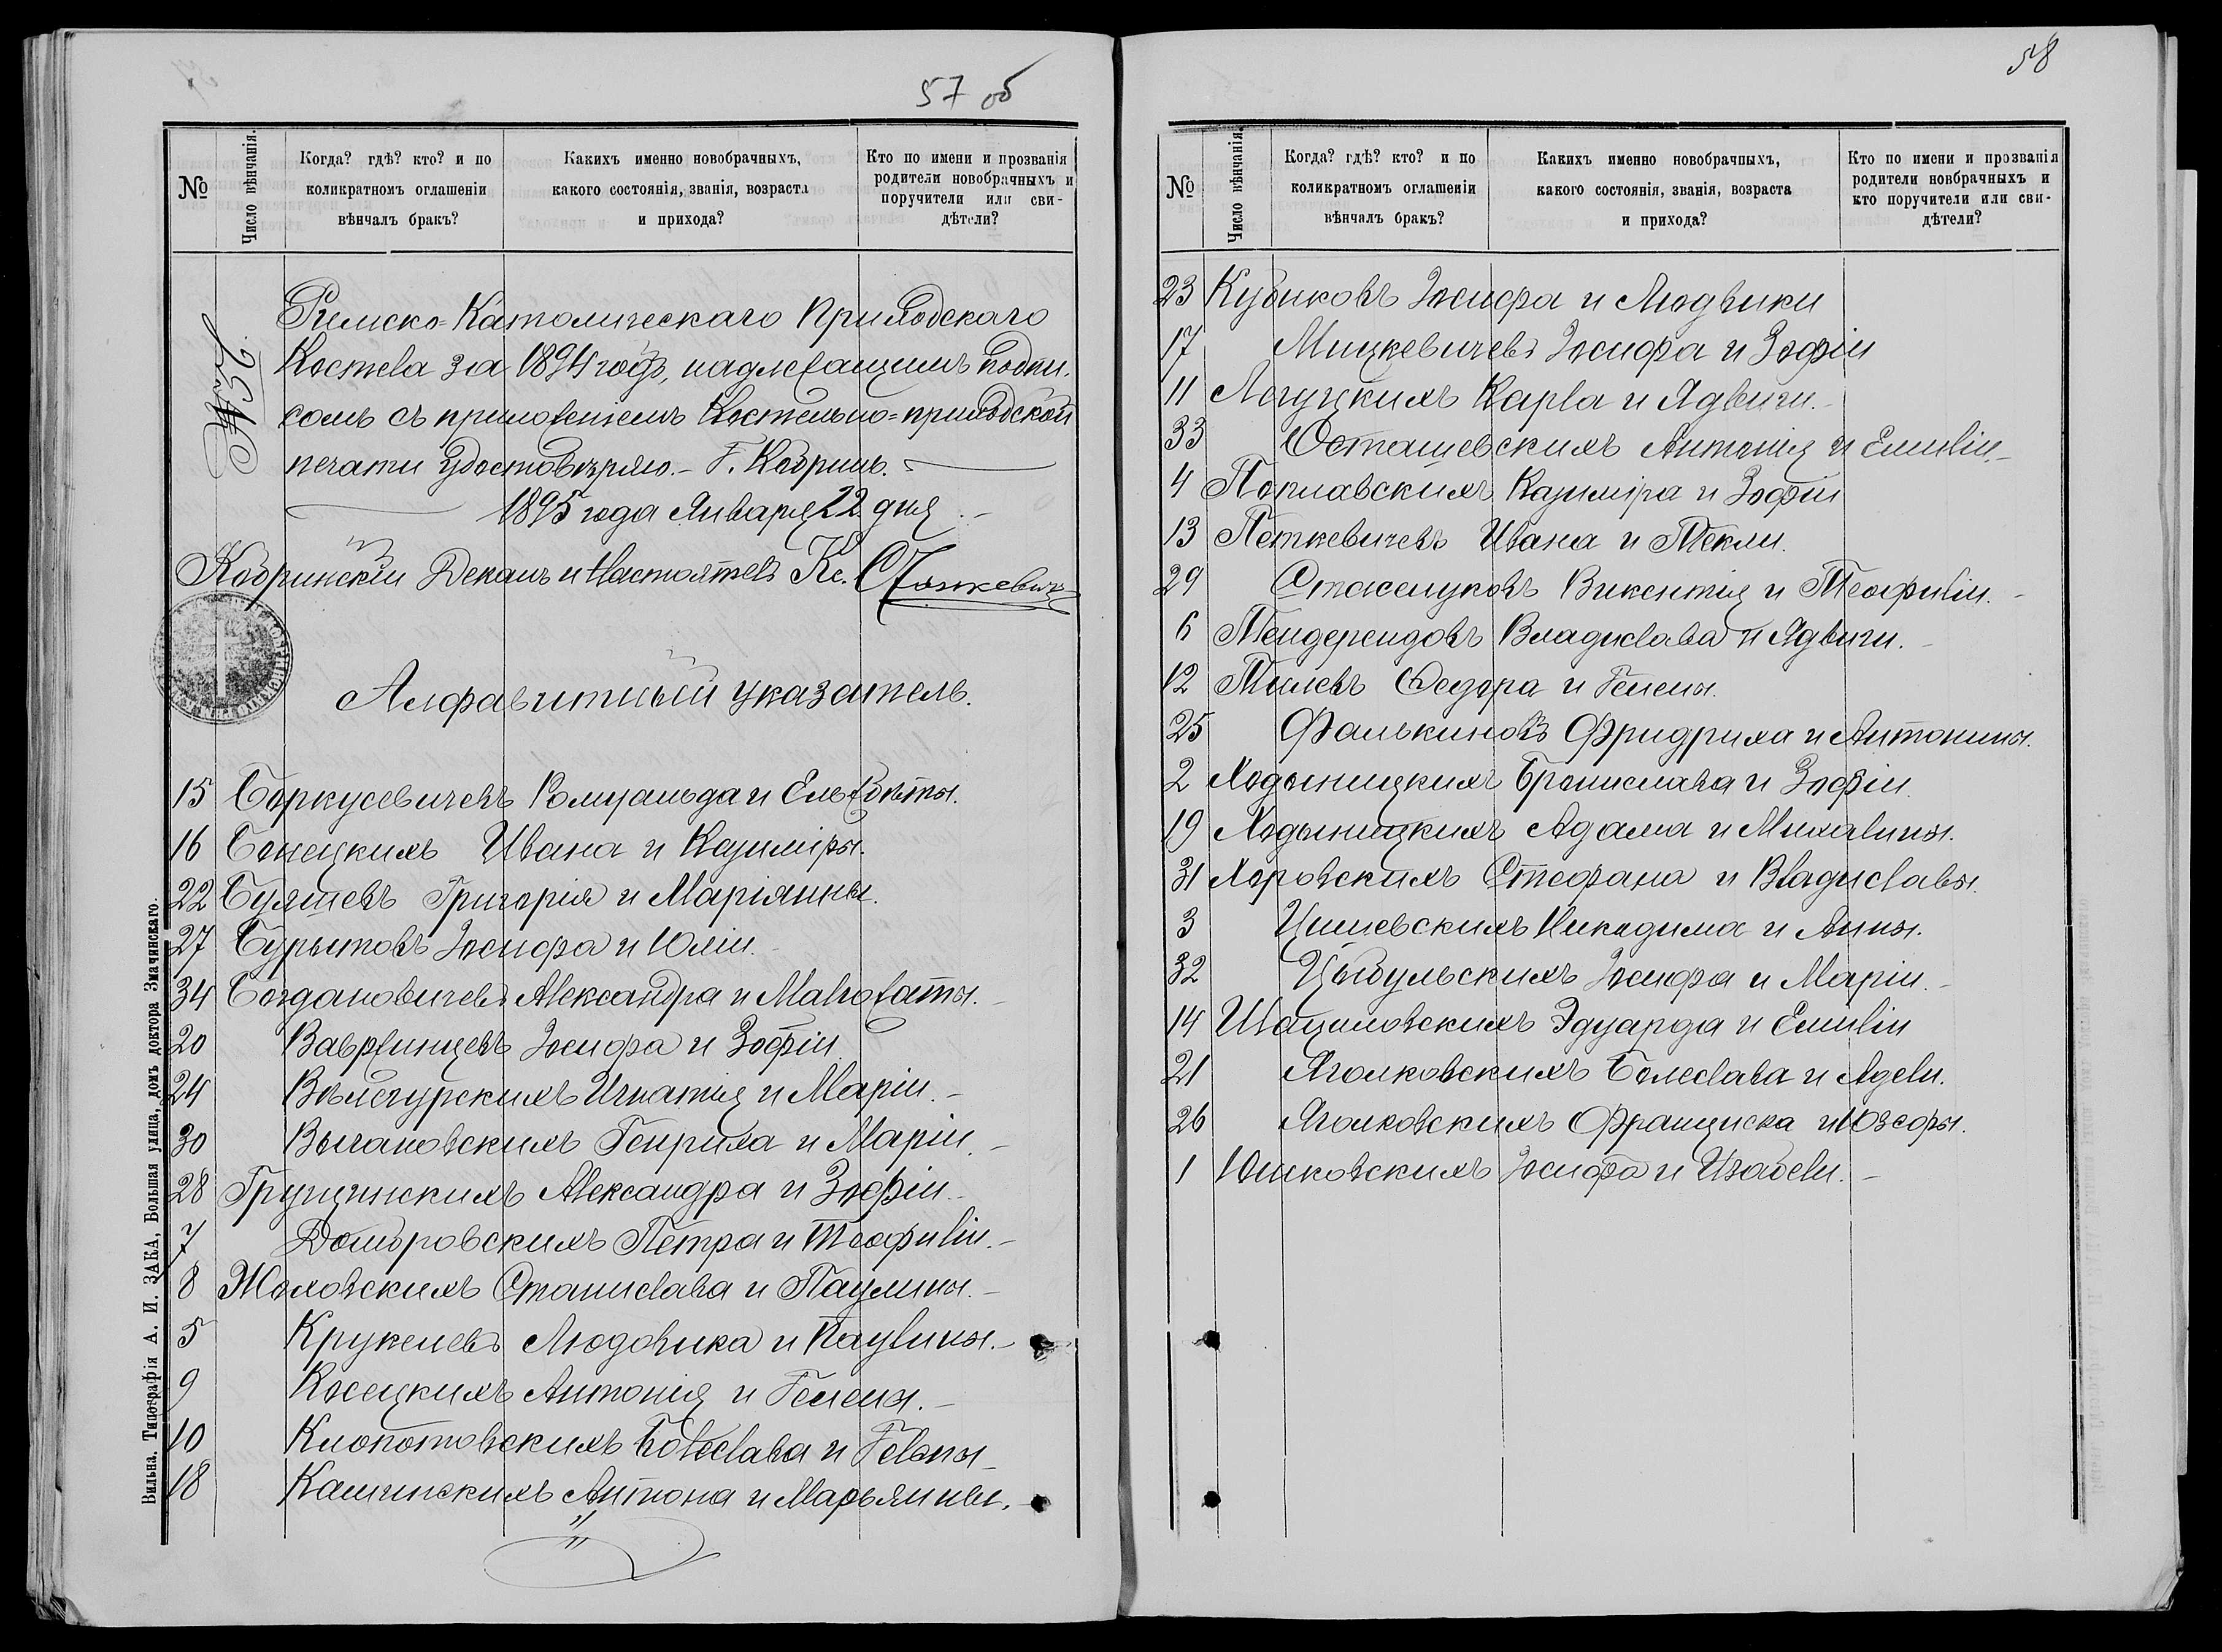 57 об
№
Число вѣнчанія.
Когда? гдѣ? кто? и по
коликратномъ оглашеніи
вѣнчалъ бракъ?
Какихъ именно новобрачныхъ,
какого состоянія, званія, возраста
и прихода?
Кто по имени и прозванія
родители новобрачныхъ и
поручители или сви-
дѣтели?
Римско-Католическаго Приходскаго
Костела за 1894 годъ, надлежащимъ подпи-
сомъ съ приложеніемъ Костельно-приходской
печати удостовѣряю.- Г. Кобринъ.
1895 года Января 22 дня.
Кобринскій Деканъ и Настоятель Кс.
Алфавитный указатель.
15 Боркусевичевъ Ромуальда и Ельжбѣты.
16 Бенецкихъ Ивана и Казиміры.
22 Буяшевъ Григорія и Маріянны.
27 Бурытовъ Іосифа и Юліи.
34 Богдановичевъ Александра и Малгожаты.
20 Вавржинцевъ Іосифа и Зофіи.
24 Игнатія и Маріи.
30 Выгановскихъ Генриха и Маріи.
28 Грущинскихъ Александра и Зофіи.
7 Домбровскихъ Петра и Теофиліи.
8 Жоховскихъ Станислава и Паулины.
5 Кружелевъ Людовика и Паулины.
9 Косецкихъ Антонія и Гелены.
10 Клопотовскихъ Болеслава и Гелены
18 Камчинскихъ Антона и Марьянны.
Вильна. Типографія А. И. ЗАКА, Большая улица, домъ доктора Змачинскаго.
58
№
Число вѣнчанія.
Когда? гдѣ? кто? и по
коликратномъ оглашеніи
вѣнчалъ бракъ?
Какихъ именно новобрачныхъ,
какого состоянія, званія, возраста
и прихода?
Кто по имени и прозванія
родители новбрачныхъ и
кто поручители или сви-
дѣтели?
23 Кубиковъ Іосифа и Людвики
17 Мицкевичевъ Іосифа и Зофіи
11 Карла и Ядвиги.
33 Осташевскихъ Антонія и Емиліи.
4 Казиміра и Зофіи
13 Петкевичевъ Ивана и Текли.
29 Стаселуковъ Викентія и Теофиліи.
6 Тендерендовъ Владислава и Ядвиги.
12 Тилевъ Федора и Гелены.
25 Фалькиновъ Фридриха и Антонины.
2 Ходыницкихъ Бронислава и Зофіи.
19 Ходыницкихъ Адама и Михалины.
31 Хоровскихъ Стефана и Владиславы.
3 Цишевскихъ Никадима и Анны.
32 Цыбульскихъ Іосифа и Маріи.
14 Шациловскихъ Эдуарда и Емиліи
21 Яголковскихъ Болеслава и Адели.
26 Яголковскихъ Франциска и Юзефы.
1 Юшковскихъ Іосифа и Изабели.